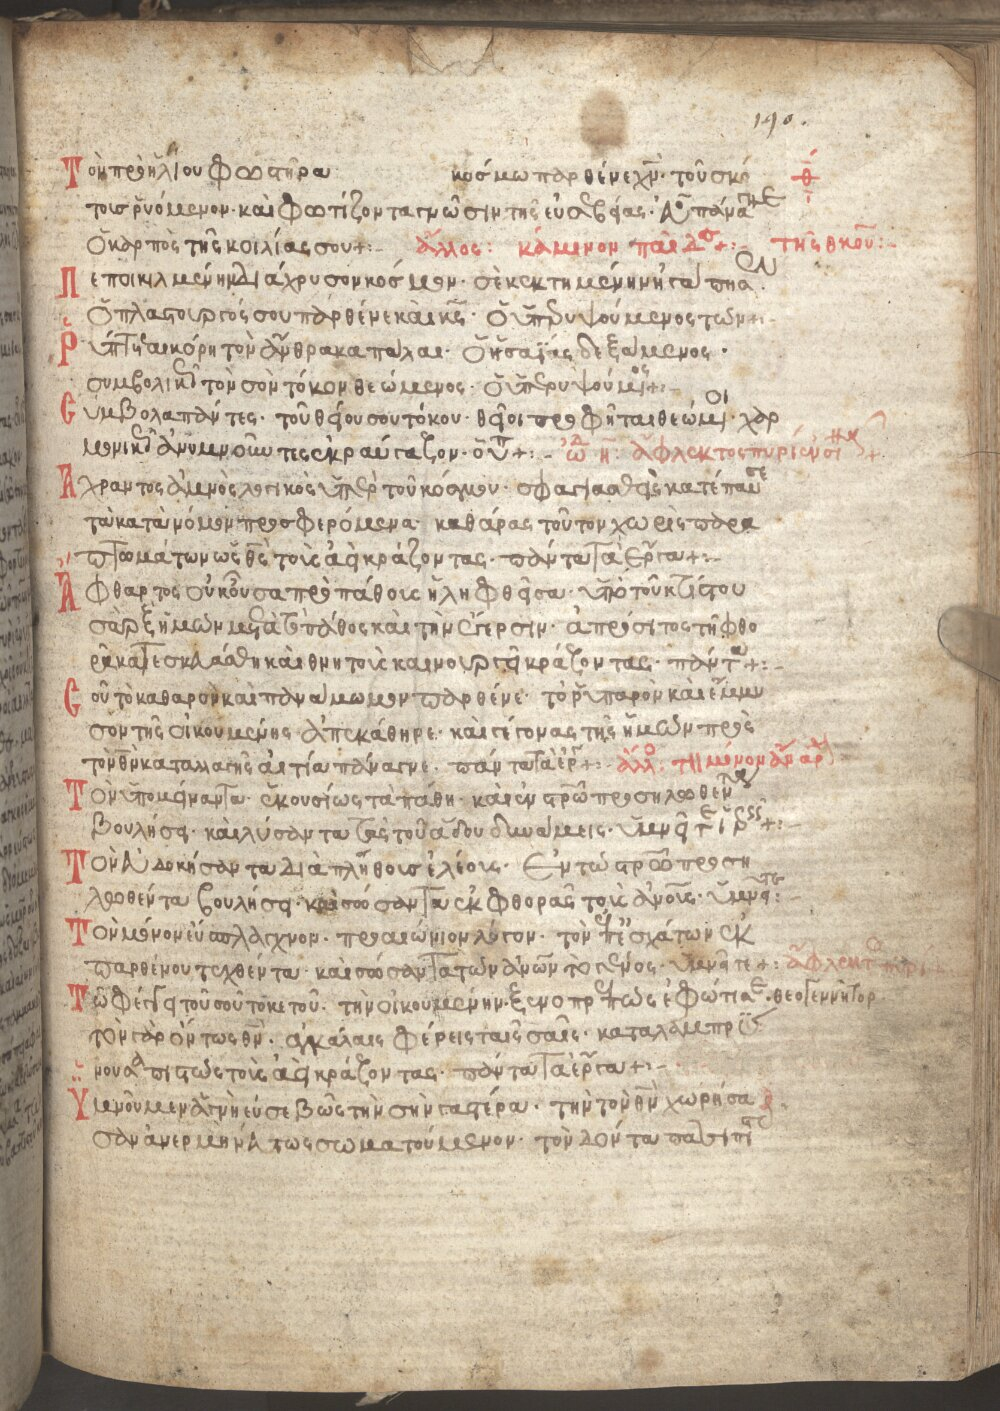 190.
Τὸν πρὸ ἡλίου φωστῆρα κόσμω παρθένε χν̅· τοῦ σκό
τους ῥυόμενον· καὶ φωτίζοντα γνώσιν τῆς εὐσεβείας·
ὁ καρπὸς τῆς κοιλίας σου +:- ἄλλος: κάμινον παῖδες +:- τῆς θκου̅:-
Πεποικιλμένην διάχρυσον κόσμον· σὲ κεκτημένην ἠγάπησεν·
ὁ πλαστουργός σου παρθένε καὶ κς̅· ὁ ὑπερυψούμενος τῶν +:-
Ρύπτεται κόρη τὸν ἄνθρακα πάλαι· ὁ ἡσαΐας δεξάμενος·
συμβολικῶς τὸν σὸν τόκον θεώμενος· ὁ ὑπερυψούμενος +:-
Σύμβολα πάντες· τοῦ θείου σου τόκου· θεῖοι προφῆται θεώμενοι· χαρ
μονικῶς ἀνυμνοῦντες ἐκραύγαζον· ὁ ὑπ +:- ὠδ η: ἄφλεκτος πυρὶ ἐν σινᾶ
Ἄχραντος ἀμνὸς λογικὸς ὑπὲρ τοῦ κόσμου· σφαγιασθεὶς κατέπαυσε
τὰ κατὰ νόμον προσφερόμενα· καθάρας τοῦτον χωρὶς παρα
πτωμάτων ὡς θς̅ τοὺς ἀεὶ κράζοντας· πάντα τὰ ἔργα +:-
Ἄφθαρτος οὐκ οὖσα πρὸ πάθους ἠλήφθησα· ὑπὸ τοῦ κτίστου
σὰρξ ἡμῶν μετὰ τὸ πάθος καὶ τὴν ἔγερσιν· ἀπρόσιτος τῆ φθο
ρᾶ κατεσκευάσθη καὶ θνητοὺς καινουργεῖ κράζοντας· πάντα +:-
Σοῦ τὸ καθαρὸν καὶ πανάμωμον παρθένε· τὸ ῥυπαρὸν καὶ ἔμμυ
σον τῆς οἰκουμένης ἀπεκάθηρε· καὶ γέγονας τῆς ἡμῶν πρὸς
τὸν θν̅ καταλλαγῆς αἰτία πάναγνε· πάντα τὰ ἔρ +:- ἄλλο: τὸν μόνον ἄναρχον
Τὸν ὑπομείναντα ἑκουσίως τὰ πάθη· καὶ ἐν στρῶ προσηλωθέντα
βουλήσει· καὶ λύσαντα τὰς τοῦ ἅδου δυνάμεις· ὑμνεῖτε ἱερεῖς +:-
Τὸν εὐδοκήσαντα διὰ πλῆθος ἐλέους· ἐν τῶ στρῶ προση
λωθέντα βουλήσει· καὶ σώσαντα ἐκ φθορᾶς τοὺς ἀνους̅· ὑμνεῖτε:-
Τὸν μόνον εὔσπλαγχνον· προαιώνιον λόγον· τὸν ἐπ' ἐσχάτων ἐκ
παρθένου τεχθέντα· καὶ σώσαντα τῶν ἀνων̅ τὸ γένος· ὑμνεῖτε +: ἄφλεκτος πυρὶ
Τῶ φέγγει τοῦ σοῦ τοκετοῦ· τὴν οἰκουμένην· ξενοπρεπῶς ἐφώτισας· θεογεννῆτορ
τὸν γὰρ ὄντως θν̅· ἀγκάλαις φέρεις ταῖς σαῖς· καταλαμπρύ
νοντα πιστῶς τοὺς ἀεὶ κράζοντας· πάντα τὰ ἔργα +:-
Ὑμνοῦμεν ἁγνὴ εὐσεβῶς τὴν σὴν γαστέρα· τὴν τὸν θν̅ χωρήσα
σαν ἀνερμηνεύτως σωματούμενον· τὸν δόντα πᾶσι πιστοῖς